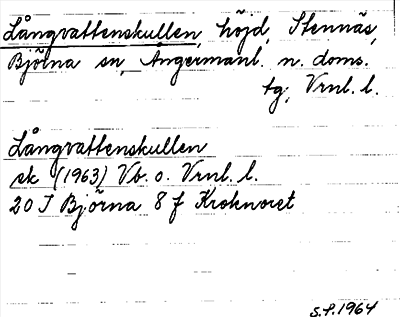 Långvattenskullen, höjd, Stennäs,
Björna sn, Ångermanl. n. doms.
tg, Vrnl. l.
Långvattenskullen
ek (1963) Vb. o. Vrnl. l.
20 J Björna 8 f Kroknoret
S.F. 1964